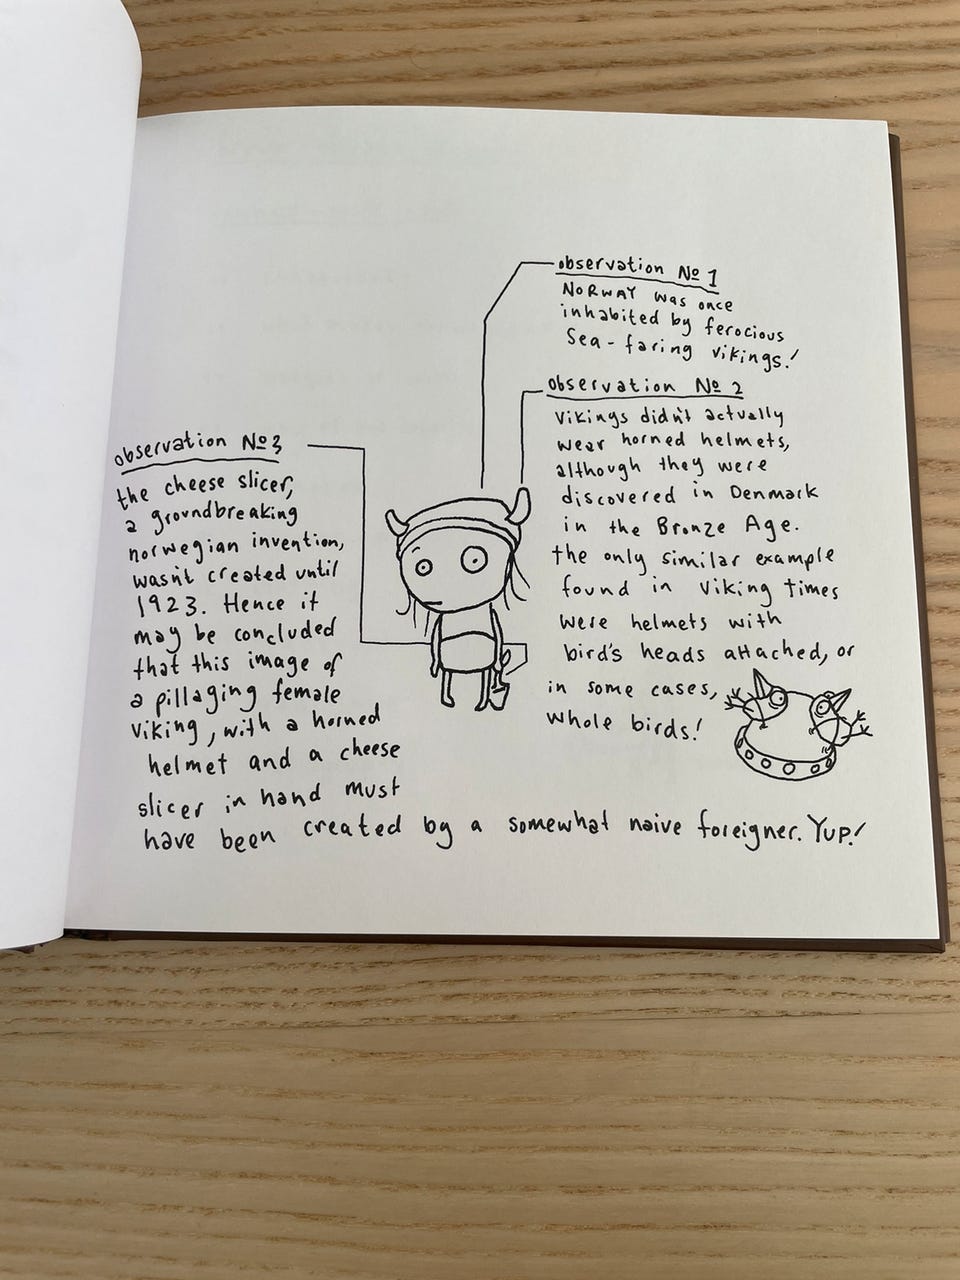 observation No 1
NORWAY was once
inhabited by ferocious
Sea-faring vikings!
observation No 2
Vikings didn't actually
wear horned helmets,
although they were
discovered in Denmark
in the Bronze Age.
the only similar example
found in Viking times
were helmets with
bird's heads attached, or
in some cases,
whole birds!
observation No 3
the cheese slicer,
a groundbreaking
norwegian invention,
wasn't created until
1923. Hence it
may be concluded
that this image of
a pillaging female
viking, with a horned
helmet and a cheese
slicer in hand must
have been created by a somewhat naive foreigner. Yup!